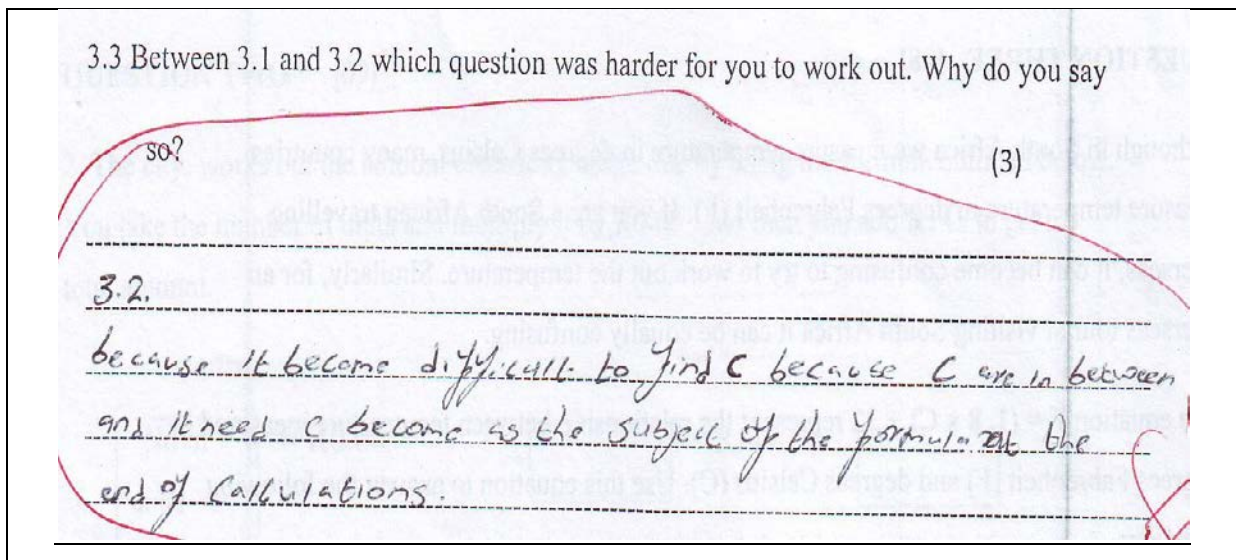 3.3 Between 3.1 and 3.2 which question was harder for you to work out. Why do you say
so?
(3)
3.2.
because it become difficult to find C because C are in between
and it need C become as the subject of the formula at the
end of Calculations.